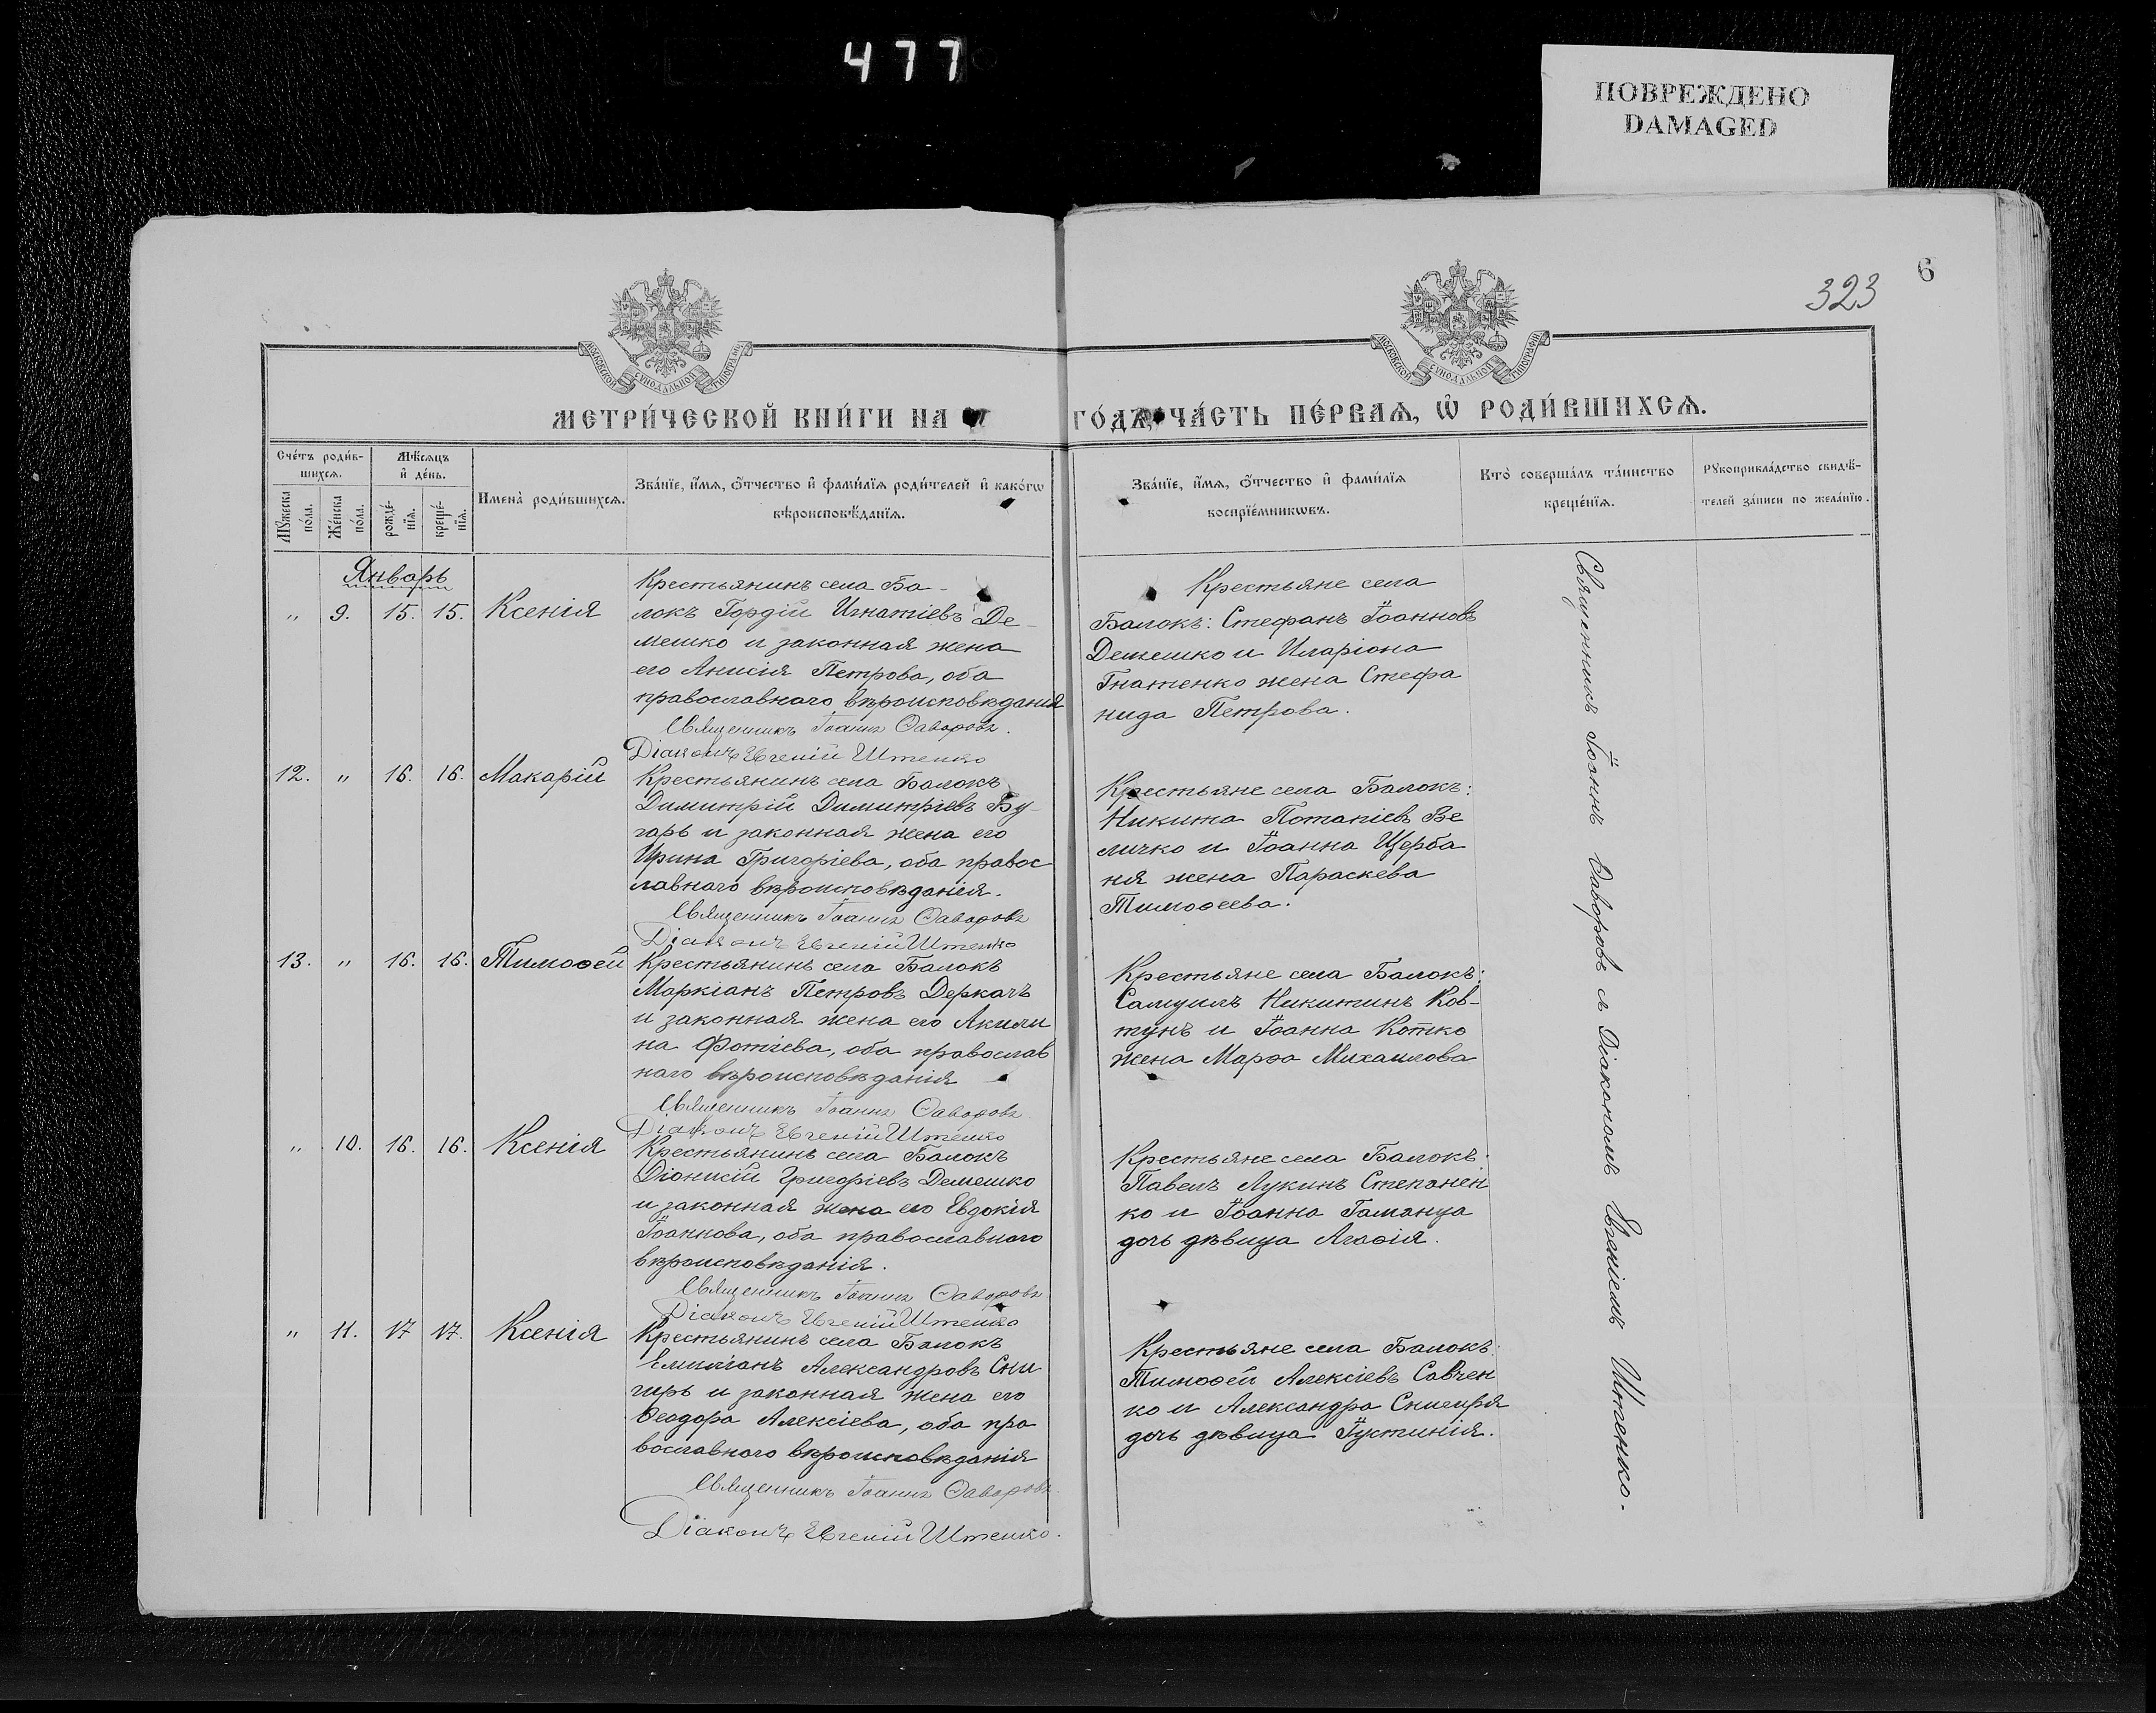 477
ПОВРЕЖДЕНО
DAMAGED
6
323
МОСКОВСКОЙ СѴНОДАЛЬНОЙ ТИПОГРАФІИ
МОСКОВСКОЙ СѴНОДАЛЬНОЙ ТИПОГРАФІИ
МЕТРИ́ЧЕСКОЙ КНИ́ГИ НА
ГО́ДЪ, ЧА́СТЬ ПЕ́РВАѦ, Ѡ҆ РОДИ́ВШИХСѦ.
Сче́тъ роди́в-
шихсѧ.
Мѣ́сѧцъ
и҆ де́нь.
Мꙋ́жеска
по́ла.
Же́нска
по́ла.
рожде́-
нїѧ.
креще́-
нїѧ.
Имена̀ роди́вшихсѧ.
Зва́нїе, и҆́мѧ, ѻ҆́тчество и҆ фами́лїѧ роди́телей и҆ како́гѡ
вѣроисповѣ́данїѧ.
Зва́нїе, и҆́мѧ, ѻ҆́тчество и҆ фами́лїѧ
воспрїе́мникѡвъ.
Кто̀ соверша́лъ та́инство
креще́нїѧ.
Рꙋкоприкла́дство свидѣ́-
телей за́писи по жела́нїю.
Январь
" 9. 15. 15. Ксенія
Крестьянинъ села Ба-
локъ Гордій Игнатіевъ Де-
мешко и законная жена
его Анисія Петрова, оба
православнаго вѣроисповѣданія
Священникъ Іоаннъ Ѳаворовъ.
Діаконъ Евгеній Штепко
Крестьяне села
Балокъ: Стефанъ Іоанновъ
Демешко и Иларіона
Гнатенко жена Стефа
нида Петрова.
12. " 16. 16. Макарій
Крестьянинъ села Балокъ
Димитрій Димитріевъ Бу-
гарь и законная жена его
Ирина Григоріева, оба правос
лавнаго вѣроисповѣданія.
Священникъ Іоаннъ Ѳаворовъ
Діаконъ Евгеній Штенко
Крестьяне села Балокъ:
Никита Потапіевъ Ве
личко и Іоанна Щерба
ня жена Параскева
Тимоѳеева.
13. " 16. 16. Тимоѳей
Крестьянинъ села Балокъ
Маркіанъ Петровъ Деркачъ
и законная жена его Акили
на Фотіева, оба православ
наго вѣроисповѣданія
Священникъ Іоаннъ Ѳаворовъ
Діаконъ Евгеній Штенко
Крестьяне села Балокъ:
Самуилъ Никитинъ Ков-
тунъ и Іоанна Котко
жена Марѳа Михаилова
" 10. 16. 16. Ксенія
Крестьянинъ села Балокъ
Діонисій Григоріевъ Демешко
и законная жена его Евдокія
Іоаннова, оба православнаго
вѣроисповѣданія.
Священникъ Іоаннъ Ѳаворовъ
Діаконъ Евгеній Штенко
Крестьяне села Балокъ:
Павелъ Лукинъ Степанен
ко и Іоанна Гаманца
дочь дѣвица Агаѳія.
" 11. 17 17. Ксенія
Крестьянинъ села Балокъ
Емиліанъ Александровъ Сни
гирь и законная жена его
Ѳеодора Алексіева, оба пра
вославнаго вѣроисповѣданія
Священникъ Іоаннъ Ѳаворовъ.
Діаконъ Евгеній Штенко.
Крестьяне села Балокъ:
Тимоѳей Алексіевъ Савчен
ко и Александра Снигиря
дочь дѣвица Іустинія.
Священникъ Іоаннъ Ѳаворовъ съ Діакономъ Евгеніемъ Штенко.